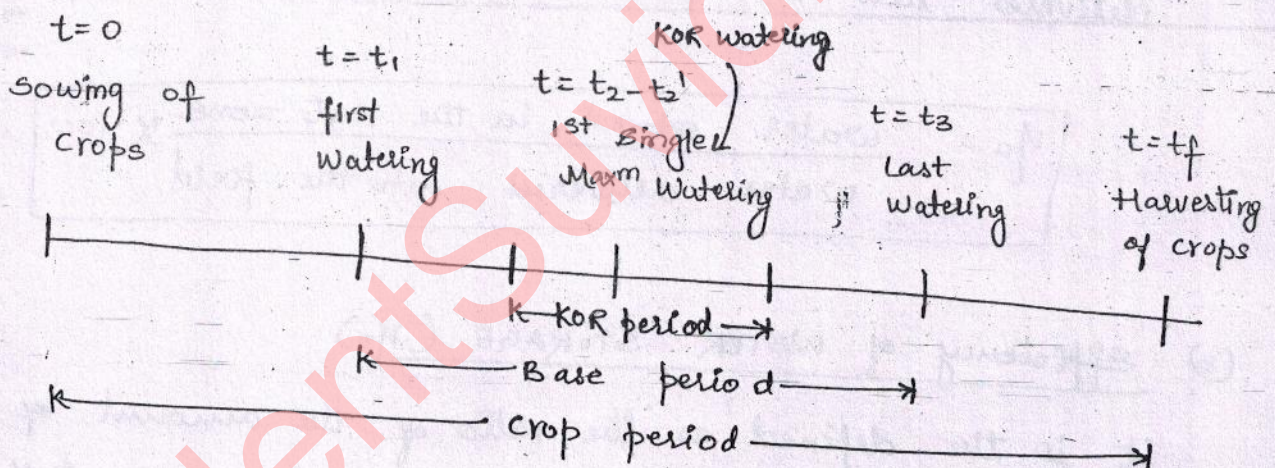 t=0
Sowing of
Crops
t = t₁
first
watering
KOR watering
t = t₂-t₂'
1st Single
Maxm Watering
t = t₃
Last
watering
t = tf
Harvesting
of crops
KOR period
Base period
Crop period
(c) efficiency of water
entSuvid